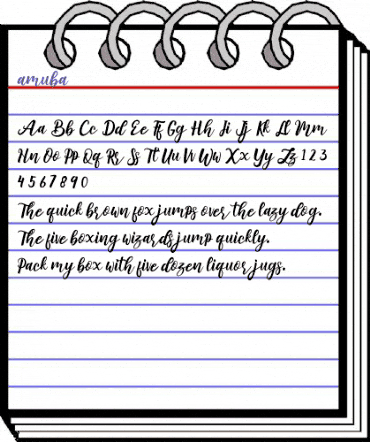 amuba
Aa Bb Cc Dd Ee Ff Gg Hh Ii Jj Kk Ll Mm
Nn Oo Pp Qq Rr Ss Tt Uu Vv Ww Xx Yy Zz 1 2 3
4 5 6 7 8 9 0
The quick brown fox jumps over the lazy dog.
The five boxing wizards jump quickly.
Pack my box with five dozen liquor jugs.